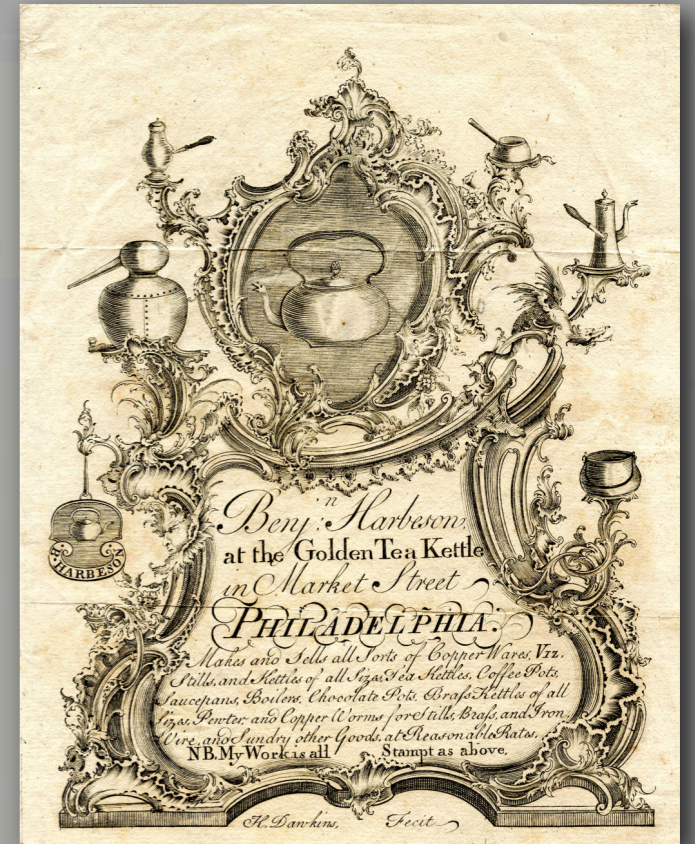 B·HARBESON
Benj:ⁿ Harbeson,
at the Golden Tea Kettle
in Market Street
PHILADELPHIA:
Makes and Sells all Sorts of Copper Wares, Viz.
Stills, and Kettles of all Sizes, Tea Kettles, Coffee Pots,
Saucepans, Boilers, Chocolate Pots, Brass Kettles of all
Sizes, Pewter and Copper Worms for Stills, Brass, and Iron,
Wire, and Sundry other Goods, at Reasonable Rates.
NB. My Work is all Stampt as above.
H. Dawkins, Fecit